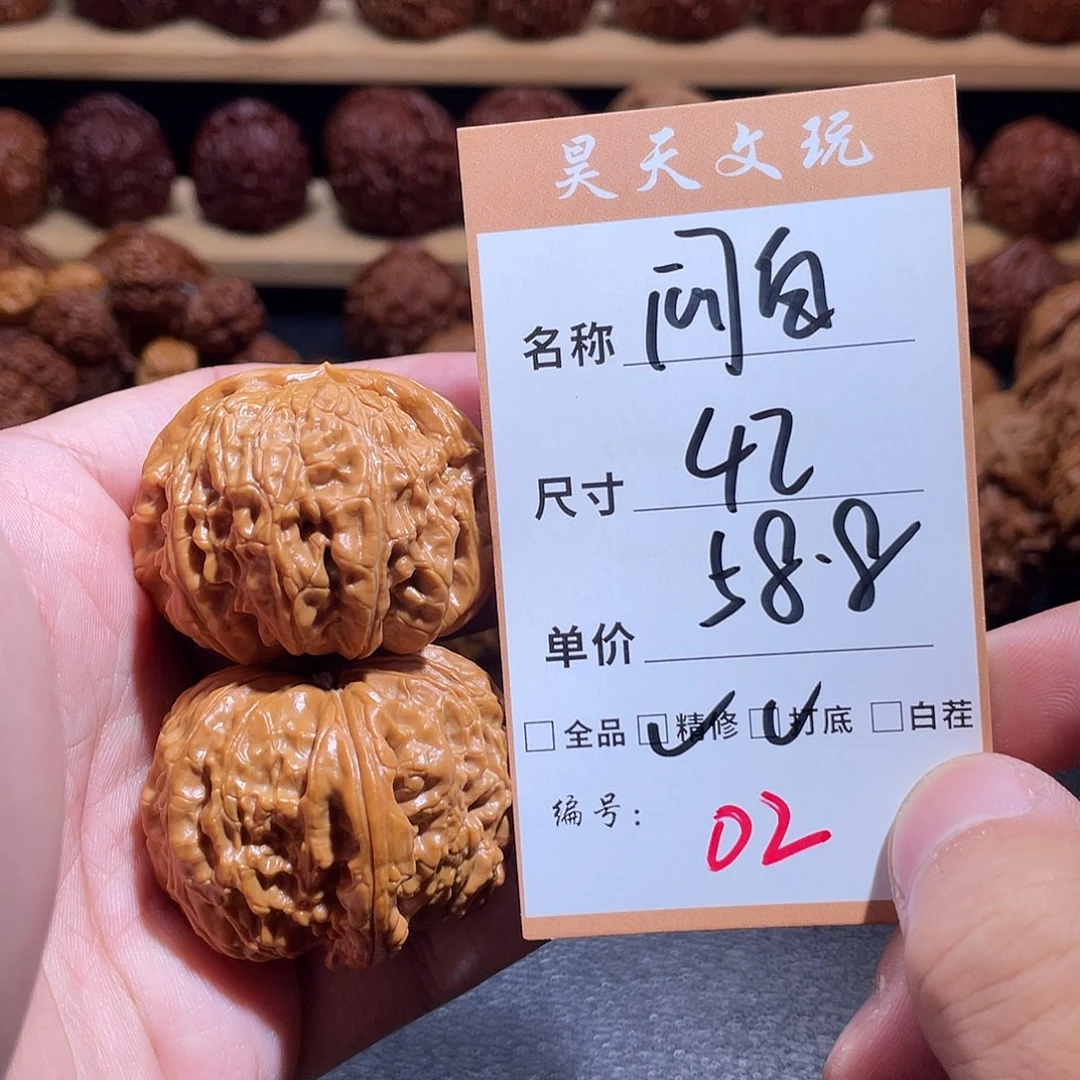 昊天文玩
名称 闷白
尺寸 42
单价 585.8
□ 全品 ☑ 精修 ☑ 打底 □ 白茬
编号： 02